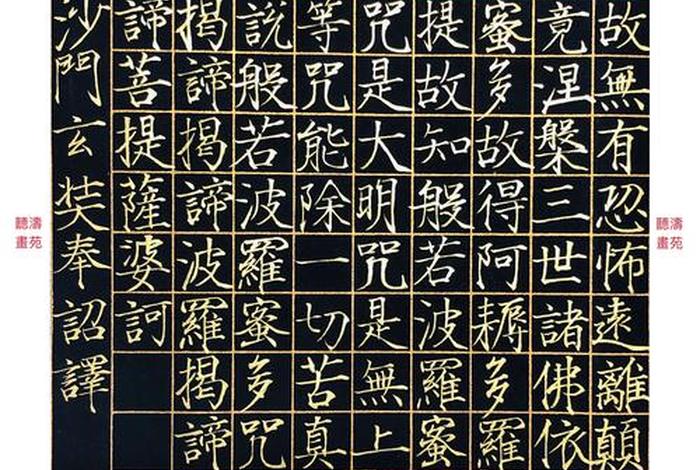 故無有恐怖遠離顛
竟涅槃三世諸佛依
蜜多故得阿耨多羅
提故知般若波羅蜜
咒是大明咒是無上
等咒能除一切苦真
說般若波羅蜜多咒
揭諦揭諦波羅揭諦
諦菩提薩婆訶
沙門玄奘奉詔譯
聽濤
畫苑
聽濤
畫苑